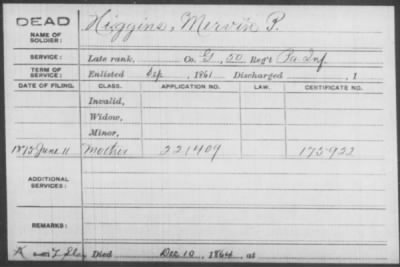 DEAD
NAME OF SOLDIER:
Higgins, Mervin P.
SERVICE:
Late rank, Co. G, 50 Reg't Pa Inf.
TERM OF SERVICE:
Enlisted Sep, 1861 Discharged , 1
DATE OF FILING. CLASS. APPLICATION NO. LAW. CERTIFICATE NO.
Invalid,
Widow,
Minor,
1875 June 11 Mother 221409 175922
ADDITIONAL SERVICES:
REMARKS:
Died Dec 10, 1864, at